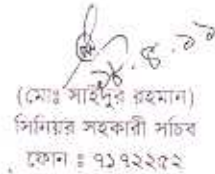 (মোঃ সাইদুর রহমান)
সিনিয়র সহকারী সচিব
ফোন ঃ ৭১৭২২৫২